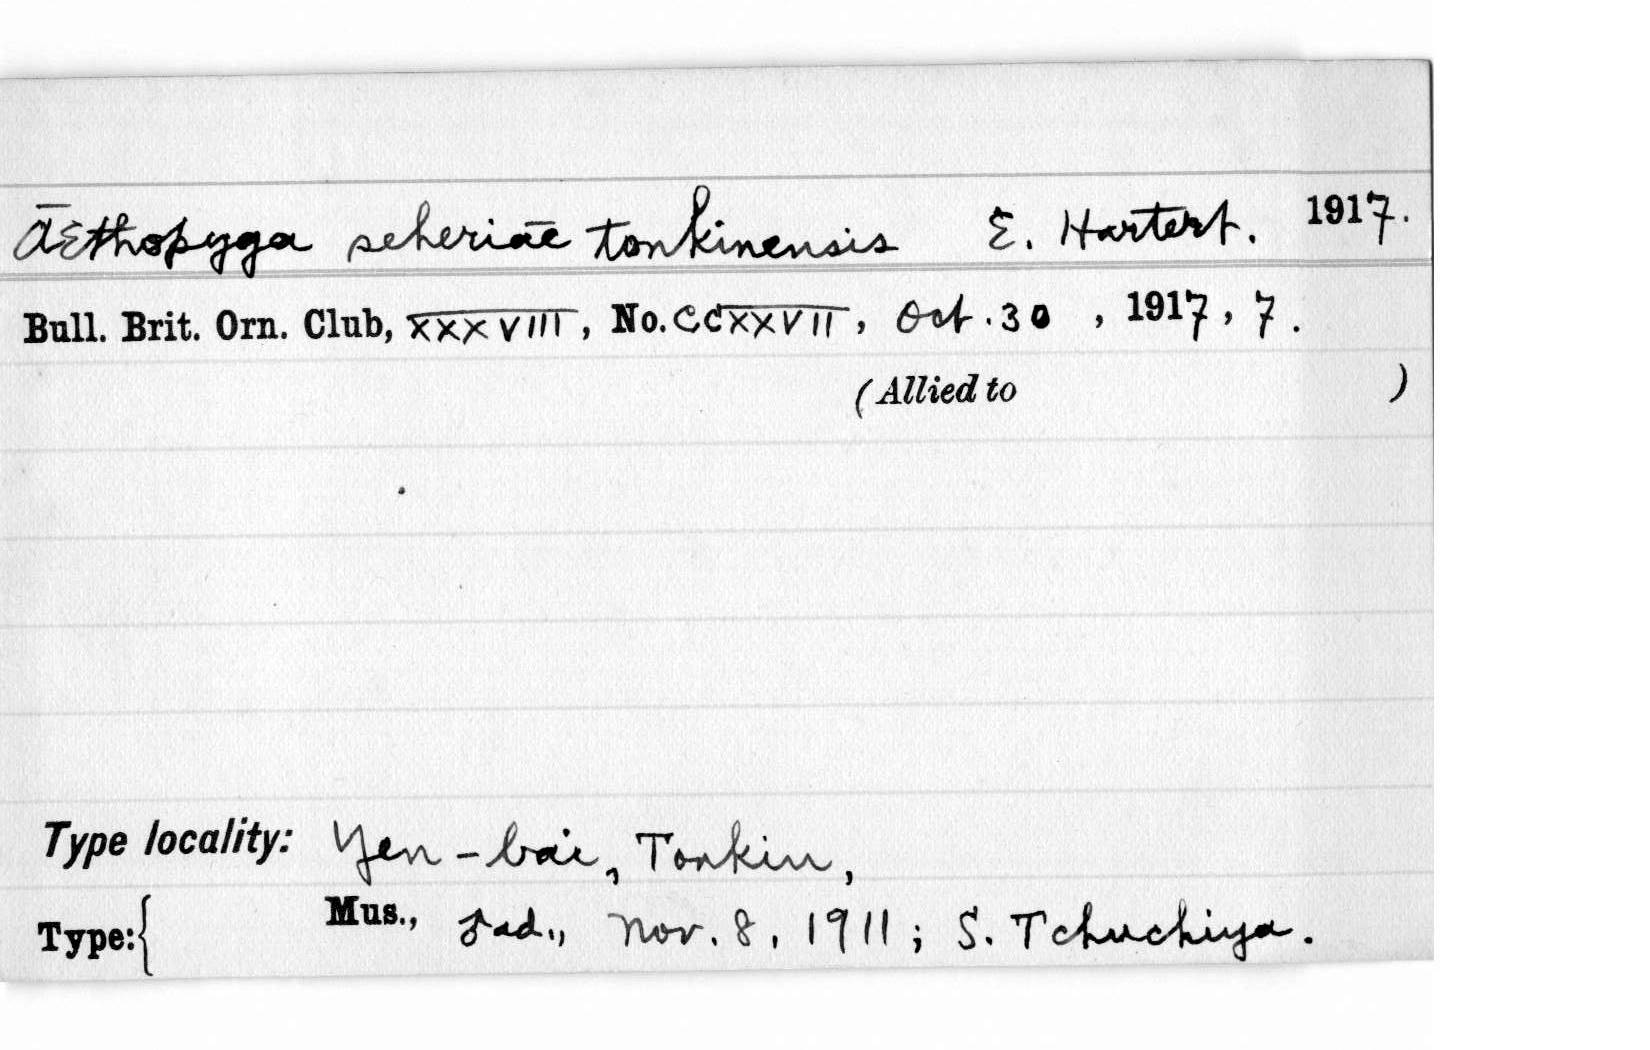 Æthopyga seheriae tonkinensis E. Hartert. 1917.
Bull. Brit. Orn. Club, XXXVIII, No. CCXXVII, Oct. 30, 1917, 7.
(Allied to )
Type locality: Yen-bai, Tonkin,
Type:{ Mus., ♂ad., Nov. 8, 1911; S. Tchuchiya.